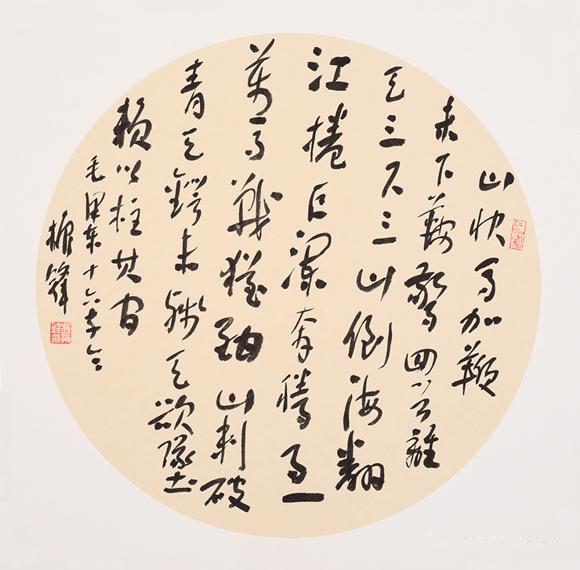 山快马加鞭
未下鞍驚回首離
天三尺三山倒海翻
江捲巨瀾奔騰急
萬马戰猶酣山刺破
青天鍔未殘天欲墜
賴以柱其间
毛澤東十六字令